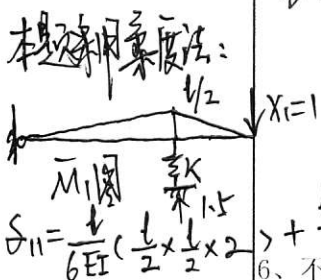 本题采用柔度法:
l/2
X₁=1
M̄₁图
1.5
δ₁₁=l/6EI(l/2×l/2×2)+
6、不